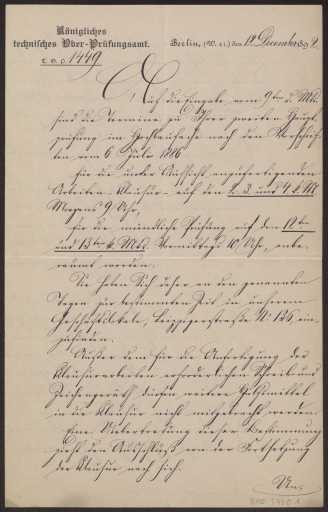 Königliches
technisches Ober-Prüfungsamt.
Berlin, (W. 41.) den 12 December 89
T. O. P. 1449
Auf die Eingabe vom 9ten d. Mts.
sind die Termine zu Ihrer zweiten Haupt-
prüfung im Hochbaufache nach den Vorschrif-
ten vom 6 Juli 1886
für die unter Aufsicht anzufertigenden
Arbeiten - Klausur - auf den 2. 3. und 4. k. M.
Morgens 9 Uhr,
für die mündliche Prüfung auf den 12ten
und 13ten k. Mts. Vormittags 10 Uhr, anbe-
raumt worden.
Sie haben Sich daher an den genannten
Tagen zur bestimmten Zeit in unserem
Geschäftslokale, Leipzigerstraße No 125, ein-
zufinden.
Außer dem für die Anfertigung der
Klausurarbeiten erforderlichen Schreib- und
Zeichengeräth dürfen weitere Hülfsmittel
in die Klausur nicht mitgebracht werden.
Eine Uebertretung dieser Bestimmung
zieht den Ausschluß von der Fortsetzung
der Klausur nach sich.
An